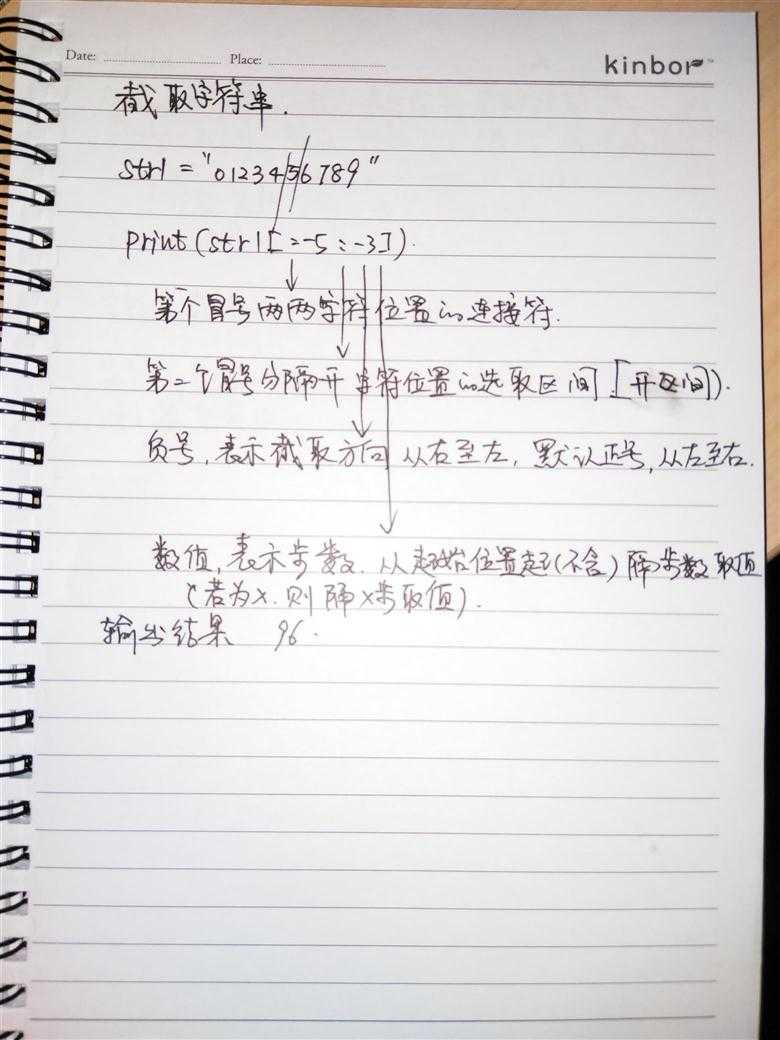 Date: Place: kinbor
截取字符串.
str1 = "0123456789"
print(str1[:-5:-3]).
第一个冒号两两字符位置的连接符.
第二个冒号分隔开字符位置的选取区间[开区间).
负号,表示截取方向 从右至左, 默认正号,从左至右.
数值,表示步数.从起始位置起(不含)隔步数取值
(若为x.则隔x步取值).
输出结果 96.